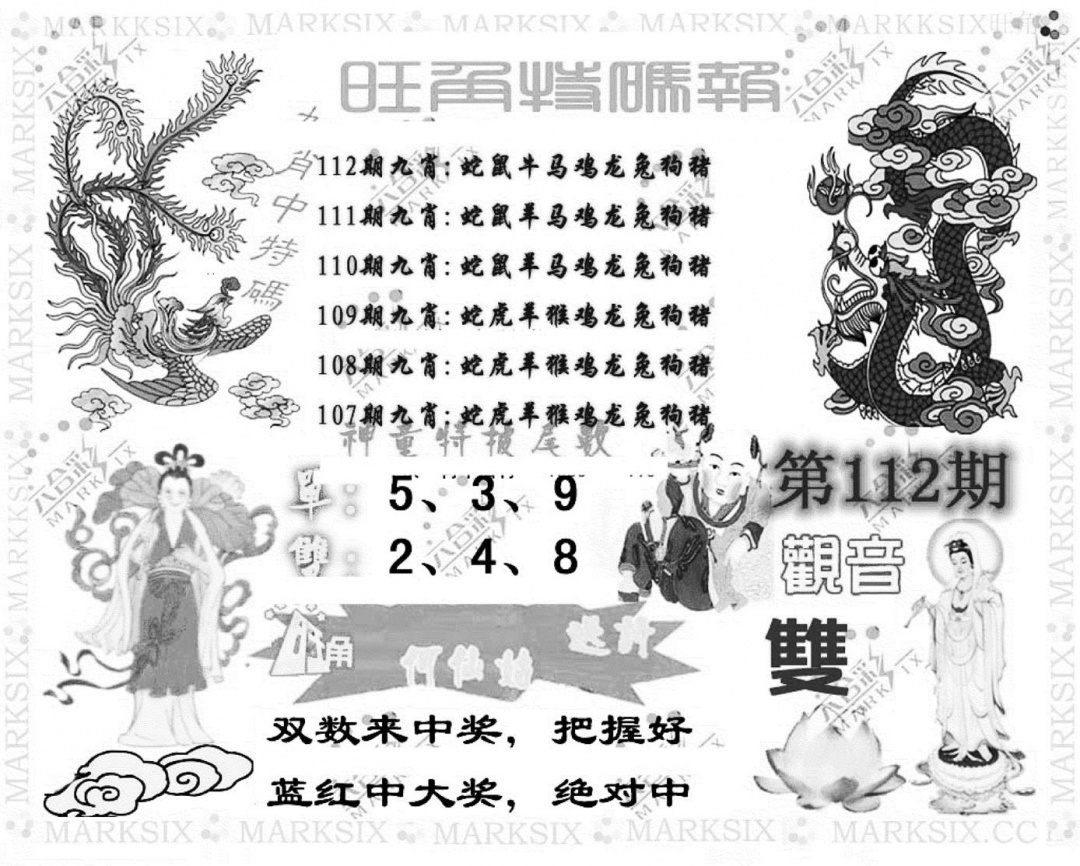 MARKSIX MARKKSIX MARKSIX MARKSIX MARKKSIX
旺角特碼報
九肖中特碼
112期九肖:蛇鼠牛马鸡龙兔狗猪
111期九肖:蛇鼠羊马鸡龙兔狗猪
110期九肖:蛇鼠羊马鸡龙兔狗猪
109期九肖:蛇虎羊猴鸡龙兔狗猪
108期九肖:蛇虎羊猴鸡龙兔狗猪
107期九肖:蛇虎羊猴鸡龙兔狗猪
神童特报尾数
單: 5、3、9
雙: 2、4、8
第112期
觀音
雙
何仙姑
双数来中奖,把握好
蓝红中大奖,绝对中
MARKSIX MARKSIX MARKSIX MARKSIX MARKSIX.CC